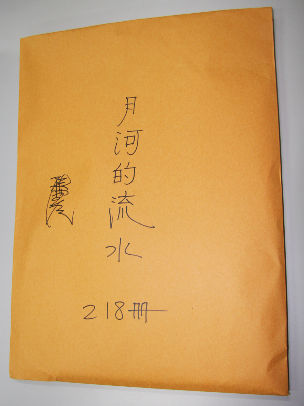 月河的流水
218冊